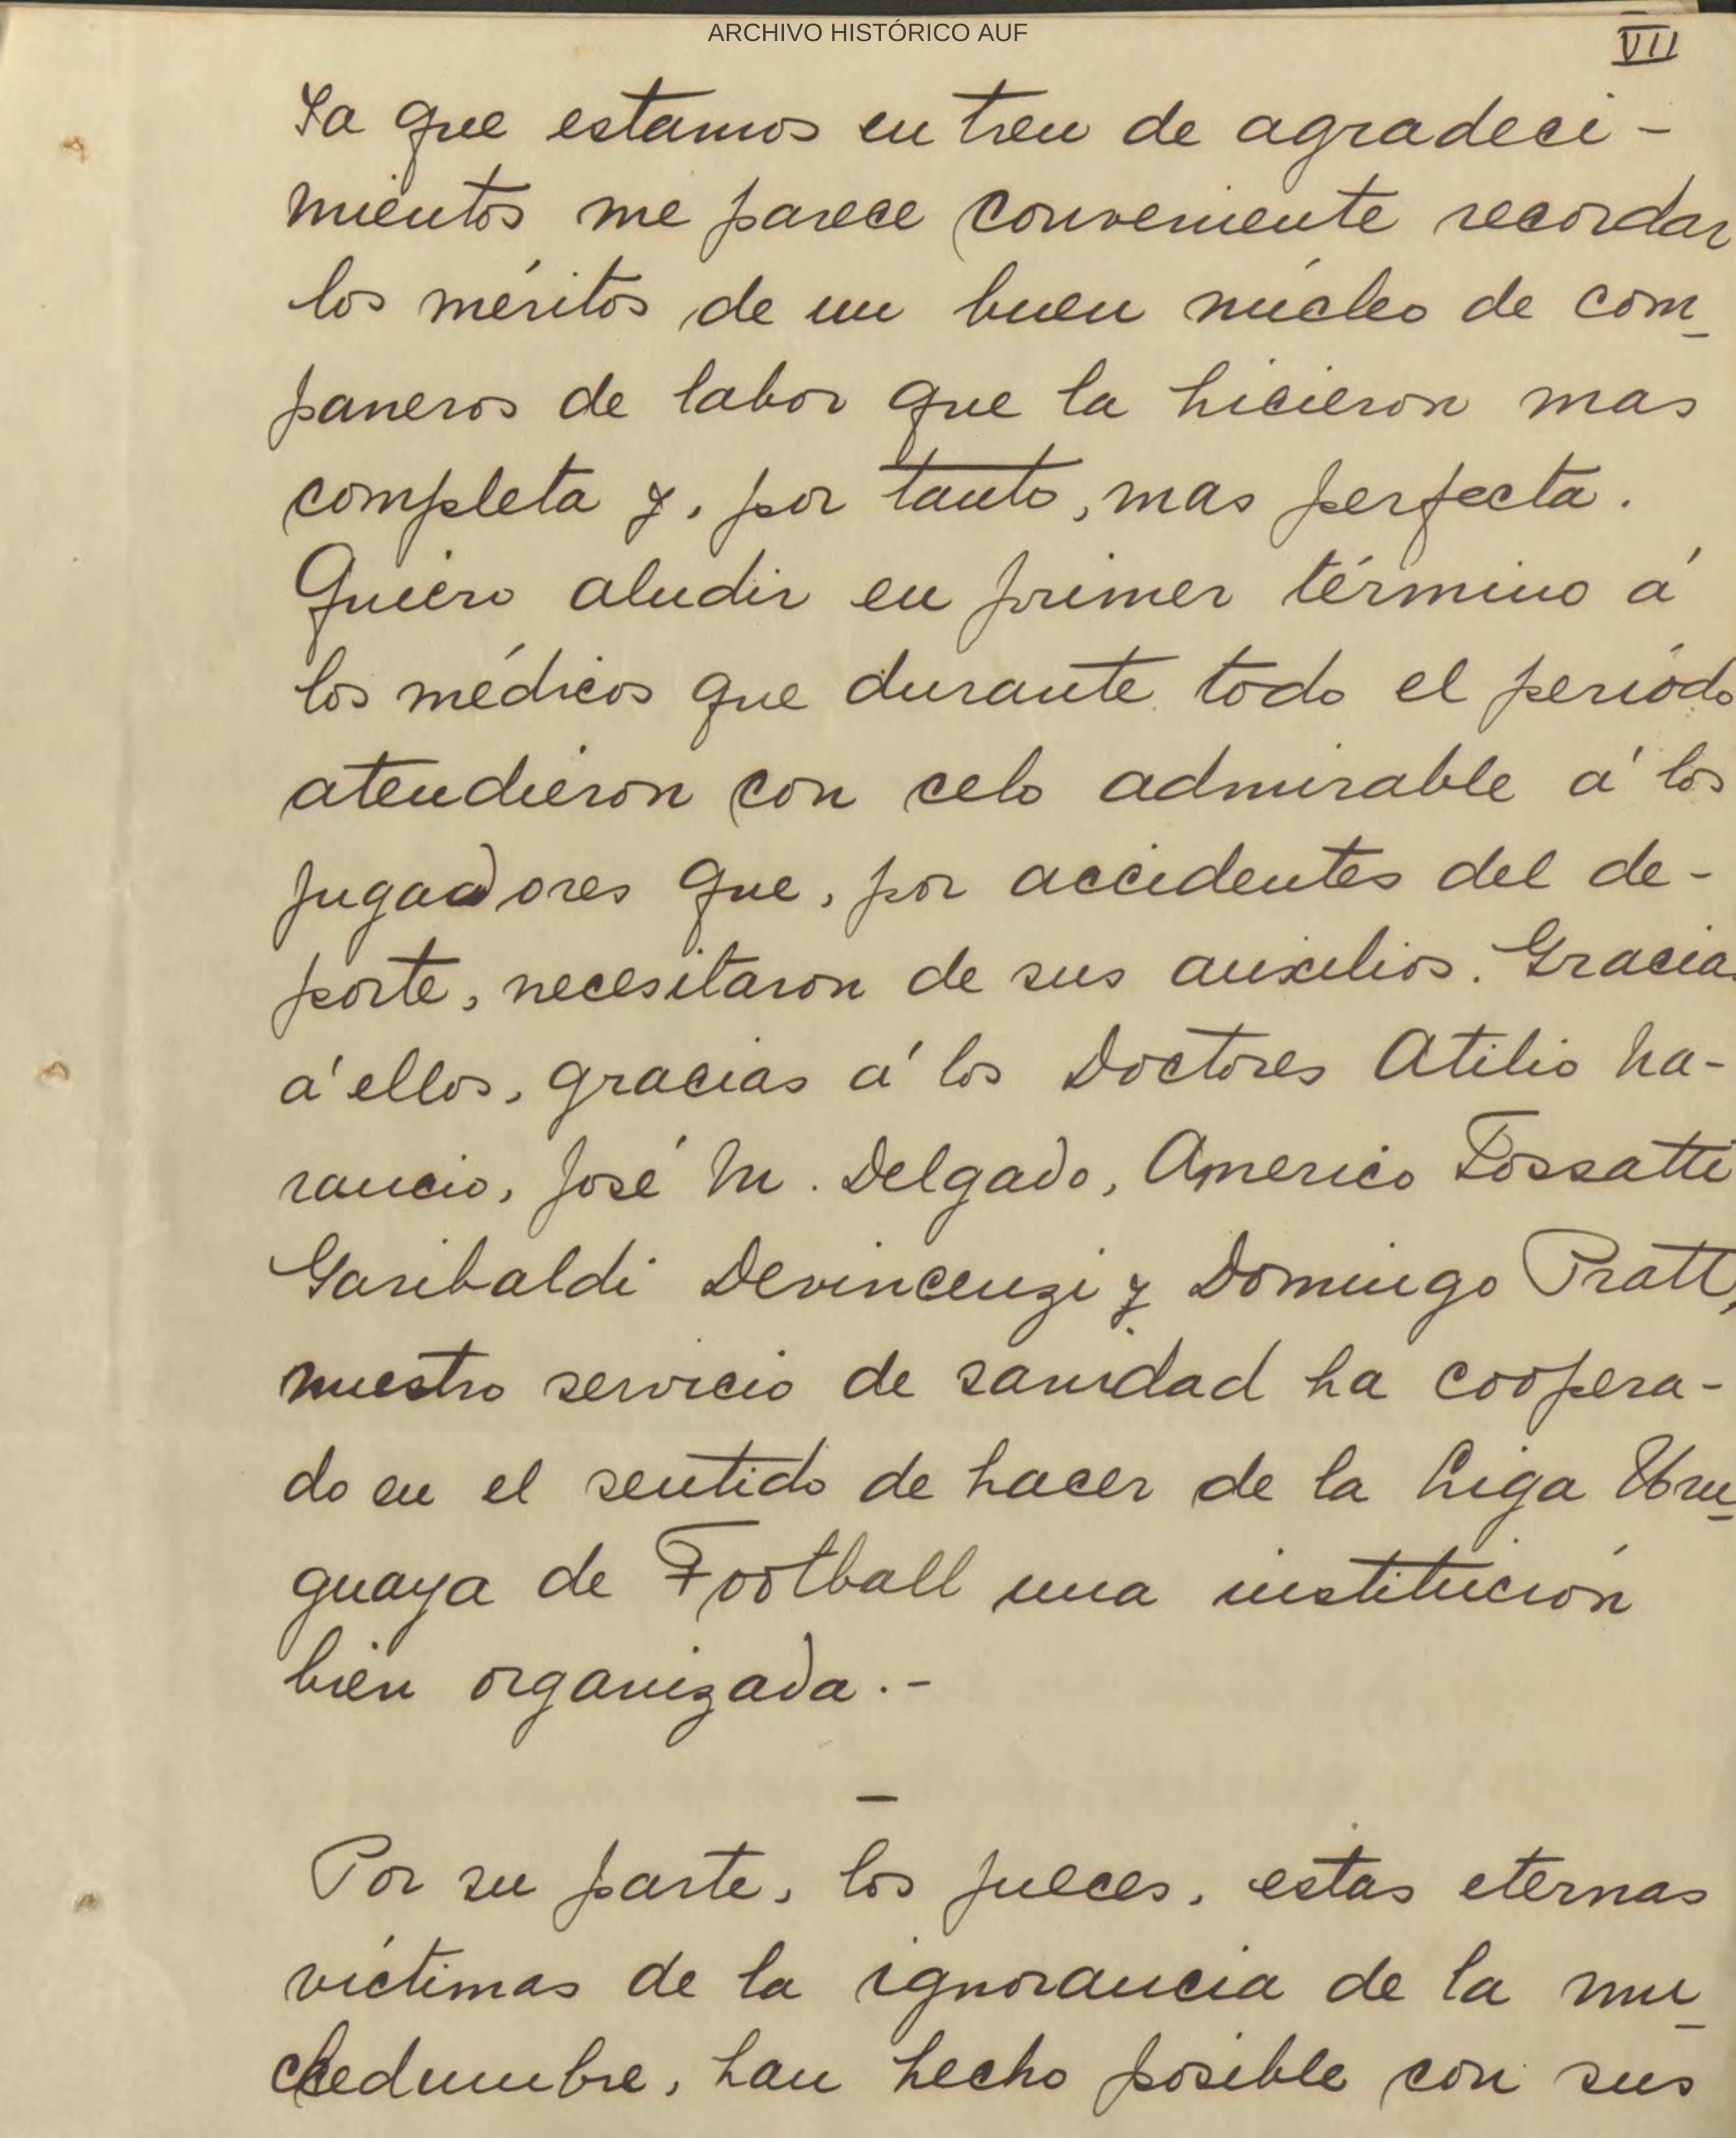 ARCHIVO HISTÓRICO AUF
VII
Ya que estamos en tren de agradeci-
mientos me parece conveniente recordar
los méritos de un buen núcleo de com_
paneros de labor que la hicieron mas
completa y, por tanto, mas perfecta.
Quiero aludir en primer término á
los médicos que durante todo el periódo
atendieron con celo admirable á los
jugadores que, por accidentes del de-
porte, necesitaron de sus auxilios. Gracias
á ellos, gracias á los Doctores Atilio Na-
rancio, José M. Delgado, Americo Fossatti
Garibaldi Devincenzi y Domingo Pratt,
nuestro servicio de sanidad ha coopera-
do en el sentido de hacer de la Liga Uru_
guaya de Football una institución
bien organizada.-
—
Por su parte, los jueces, estas eternas
víctimas de la ignorancia de la mu_
chedumbre, han hecho posible con sus